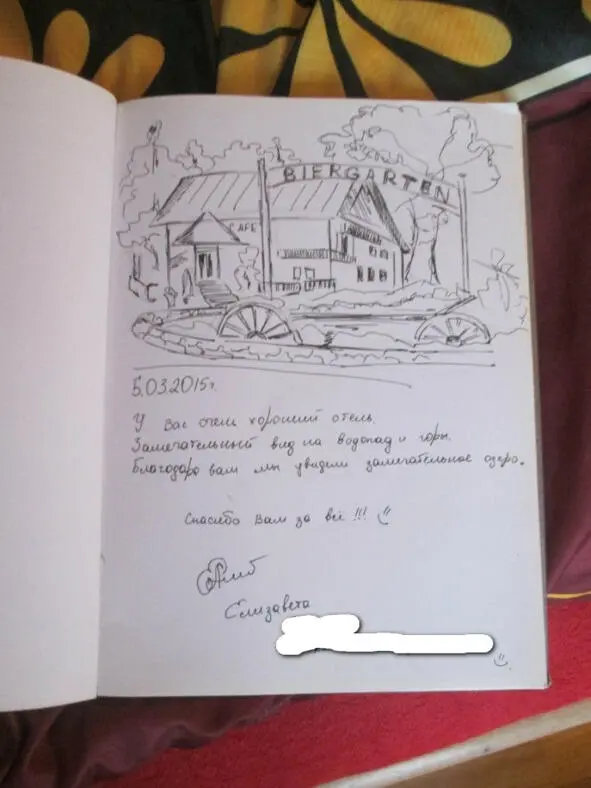 BIERGARTEN
CAFE
5.03.2015г.
У Вас очень хороший отель.
Замечательный вид на водопад и горы.
Благодоро вам мы увидили замечательное озеро.
Спасибо Вам за всё !!!
Елизавета